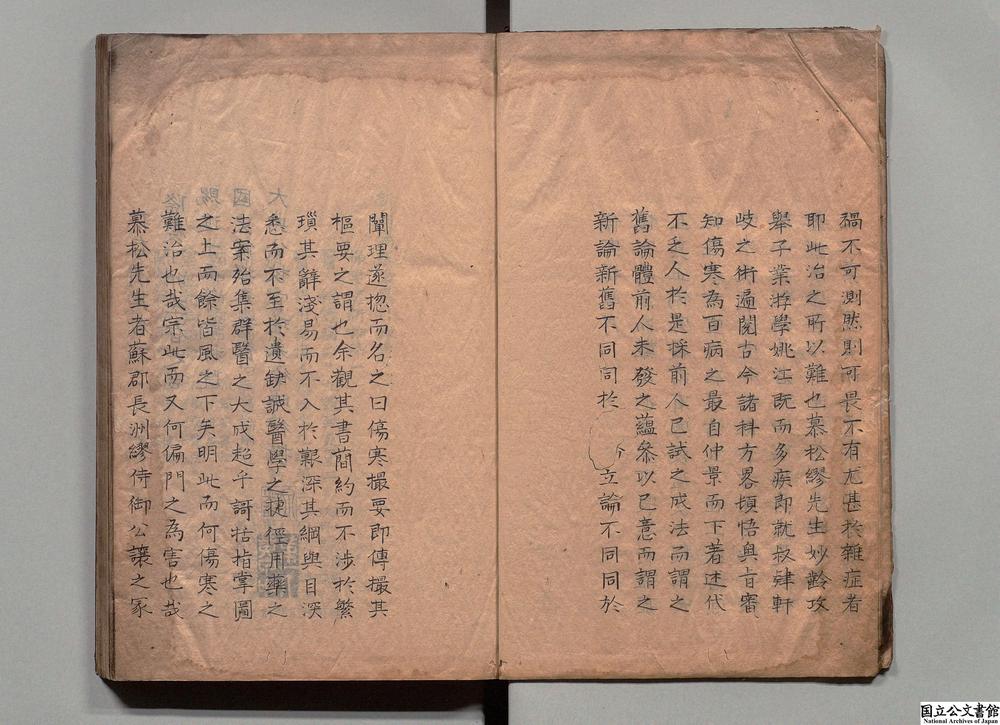 禍不可測然則可畏不有尤甚於雜症者
耶此治之所以難也慕松繆先生妙齡攻
舉子業游學姚江既而多疾即就叔肄軒
岐之術遍閱古今諸科方畧頓悟奧旨審
知傷寒為百病之最自仲景而下著述代
不乏人於是採前人已試之成法而謂之
舊論體前人未發之蘊叅以已意而謂之
新論新舊不同同於 立論不同同於
闡理遂揔而名之曰傷寒撮要即傳撮其
樞要之謂也余觀其書蕑約而不涉於繁
瑣其辭淺易而不入於艱深其綱與目深
悉而不至於遺缺誠醫學之捷徑用藥之
法案殆集群醫之大成超乎謌括指掌圖
之上而餘皆風之下矣明此而何傷寒之
難治也哉宗此而又何偏門之為害也哉
慕松先生者蘇郡長洲繆侍御公讓之冢
国立公文書館
National Archives of Japan